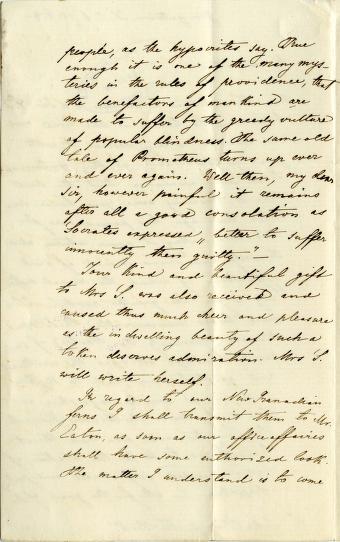 people, as the hypocrites say. True
enough it is one of the many mys-
teries in the rules of providence, that
the benefactors of mankind are
made to suffer by the greedy vulture
of popular blindness. The same old
tale of Prometheus turns up ever
and ever again. Well then, my dear
Sir, however painful it remains
after all a good consolation as
Socrates expressed „better to suffer
innocently then guilty."—
Your kind and beautiful gift
to Mrs S. was also received and
caused thus much cheer and pleasure
as the indwelling beauty of such a
token deserves admiration. Mrs S.
will write herself.
In regard to our New Granadian
ferns I shall transmit them to Mr.
Eaton, as soon as our affaires
shall have some authorized look.
The matter I understand is to come